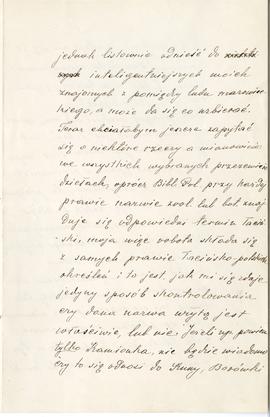 jednak listownie odnieść do
inteligentniejszych moich
znajomych z pomiędzy ludu mazowiec-
kiego, a może da się co uzbierać.
Teraz chciałabym jeszcze zapytać
się o niektóre rzeczy a mianowicie:
we wszystkich wybranych przezemnie
dziełach, oprócz Bibl. Pol. przy każdej
prawie nazwie zool. lub bot. znaj-
duje się odpowiedni termin łaciń-
ski, moja więc robota składa się
z samych prawie łacińsko-polskich
określeń i to jest, jak mi się zdaje
jedyny sposób skontrolowania
czy dana nazwa wzięta jest
właściwie, lub nie. Jeżeli np. powiem
tylko Kamionka, nie będzie wiadomo
czy to się odnosi do Kuny, Borówki